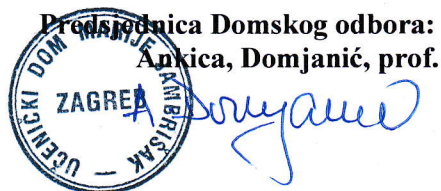 Predsjednica Domskog odbora:
Ankica, Domjanić, prof.
UČENIČKI DOM MARIJE JAMBRIŠAK
ZAGREB
A Domjanić